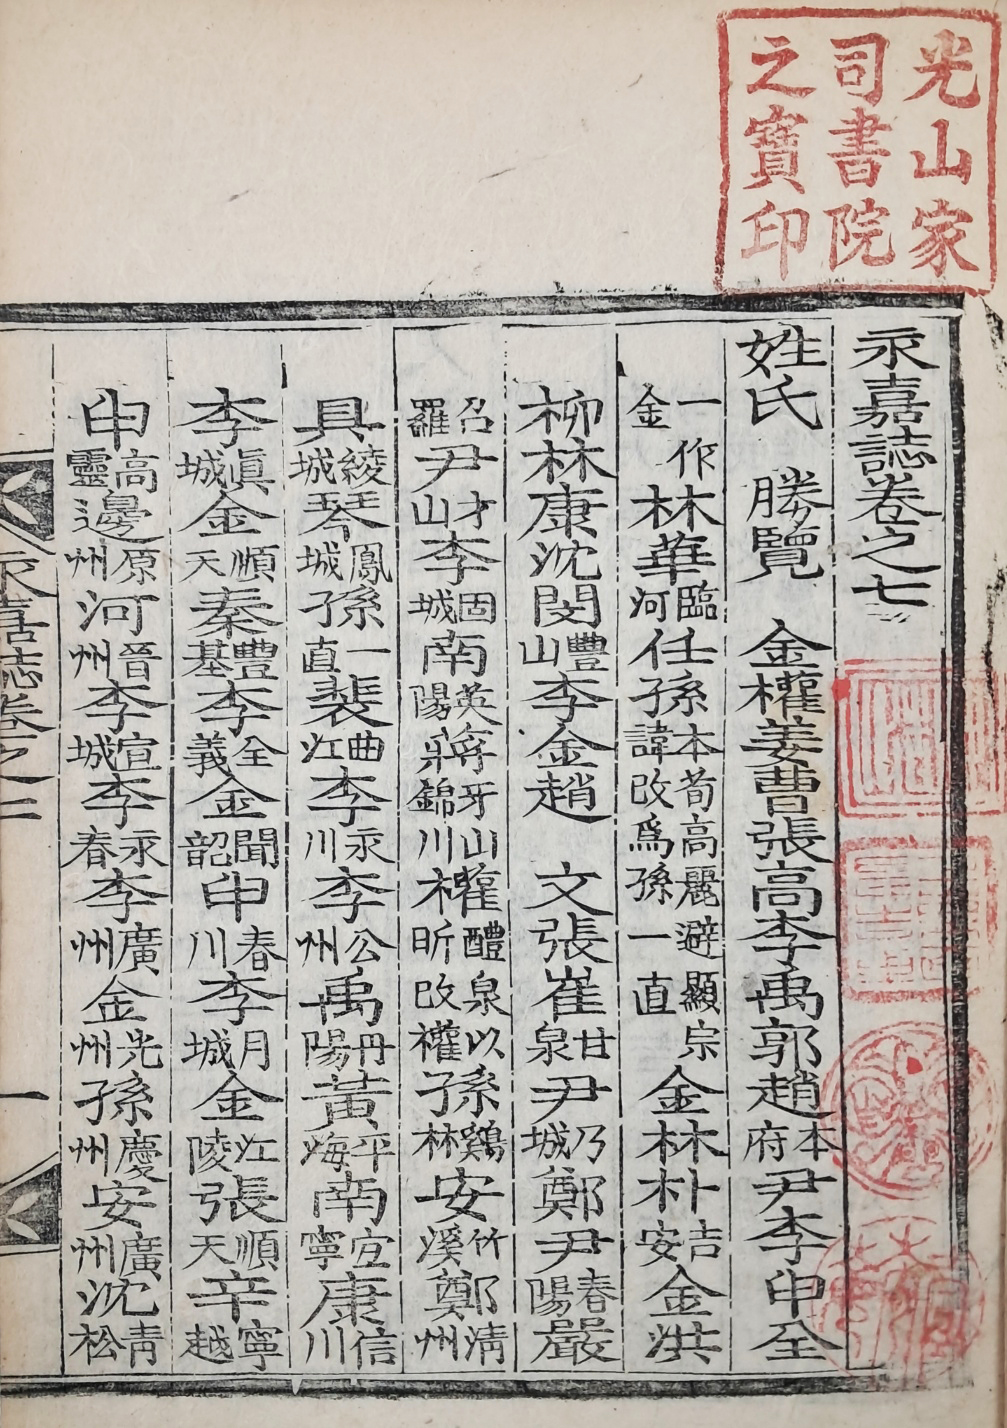 光山家
司書院
之寶印
永嘉誌卷之七
姓氏 勝覽 金權姜曹張高李禹郭趙本府尹李申全
一作金林華臨河任孫本荀高麗避顯宗諱改爲孫一直金林朴吉安金洪
柳林康沈閔豊山李金趙 文張崔甘泉尹乃城鄭尹春陽嚴
召羅尹才山李固城南英陽蔣牙山錦川權醴泉以昕改權孫鷄林安竹溪鄭淸州
具綾城琴鳳城孫一直裴曲江李永川李公州禹丹陽黃平海南宜寧康信川
李眞城金順天秦豊基李全義金聞韶申春川李月城金江陵張順天辛寧越
申高靈邊原州河晉州李宣城李永春李廣州金光州孫慶州安廣州沈靑松
永嘉誌卷之
一